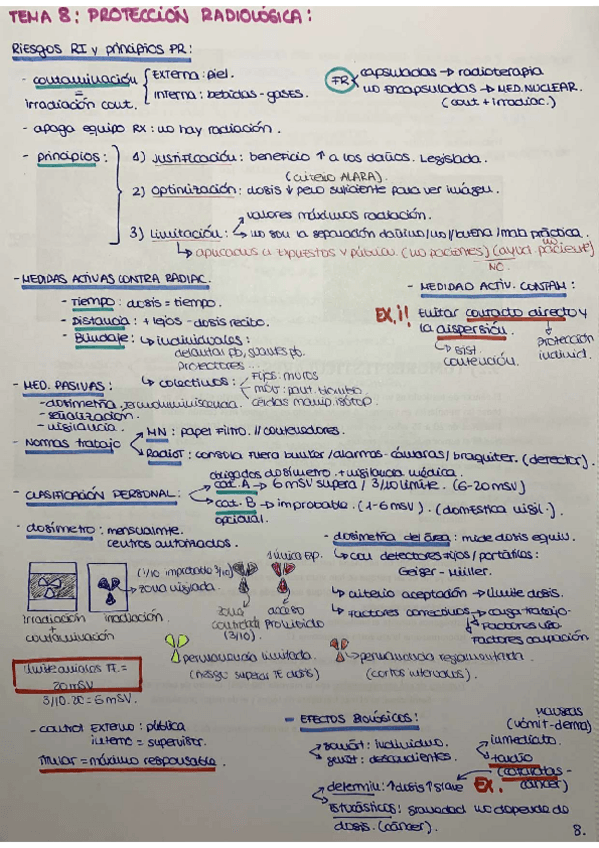 TEMA 8: PROTECCIÓN RADIOLÓGICA:
Riesgos RI y principios PR:
- contaminación { Externa: piel.
= irradiación cont. Interna: bebidas - gases.
FR capsuladas → radioterapia
no encapsuladas → MED. NUCLEAR.
(cont + irradiac.)
- apaga equipo RX: no hay radiación.
- principios:
1) Justificación: beneficio ↑ a los daños. Legislada.
(criterio ALARA).
2) Optimización: dosis ↓ pero suficiente para ver imagen.
3) Limitación: valores máximos radiación.
no son la separación dañino/no/buena/mala práctica.
↳ aplicados a expuestos y público. (no pacientes) (ayud. paciente)
NO
- MEDIDAS ACTIVAS CONTRA RADIAC.
- Tiempo: dosis = tiempo.
- Distancia: + lejos - dosis recibo.
- Blindaje: ↳ individuales:
delantal pb, guantes pb.
Protectores...
↳ colectivos: Fijos: muros
móv: pant. biombo
celdas manip. isótop.
- MEDIDAD ACTIV. CONTAM:
EX.¡! Evitar contacto directo y
la dispersión.
↳ sist. contención.
Protección individ.
- MED. PASIVAS:
- dosimetría, termoluminiscencia.
- señalización
- vigilancia
- Normas trabajo
MN: papel filtro. // contenedores.
Radiot: consola fuera bunker / alarmas - cámaras / braquiter. (detector).
- CLASIFICACIÓN PERSONAL:
obligados dosímetro + vigilancia médica.
cat. A → 6 mSV supera / 3/10 límite. (6-20 mSV)
cat. B → improbable. (1-6 mSV). (dosimetría vigil.).
opcional.
- dosímetro: mensualmte.
centros autorizados.
- dosimetría del área: mide dosis equiv.
↳ con detectores fijos / portátiles:
Geiger - Müller.
↳ criterio aceptación → límite dosis.
↳ Factores correctivos → carga trabajo.
Factores uso
Factores ocupación
Irradiación + contaminación
irradiación.
(1/10 improbable 3/10)
zona vigilada
zona controlada (3/10).
1 única exp.
acceso Prohibido
permanencia limitada.
(riesgo superar TE dosis)
permanencia reglamentada.
(cortos intervalos).
límite anual es TE =
20 mSV
3/10. 20 = 6 mSV.
- control Externo: pública
interno = supervisor.
Titular = máximo responsable.
- EFECTOS BIOLÓGICOS:
somát: individuo.
genét: descendientes.
náuseas
(vómit-derma)
inmediato.
tardío
(cataratas - cáncer)
EX.
determin: ↑dosis ↑grave
Estocásticos: gravedad no depende de
dosis. (cáncer).
8.